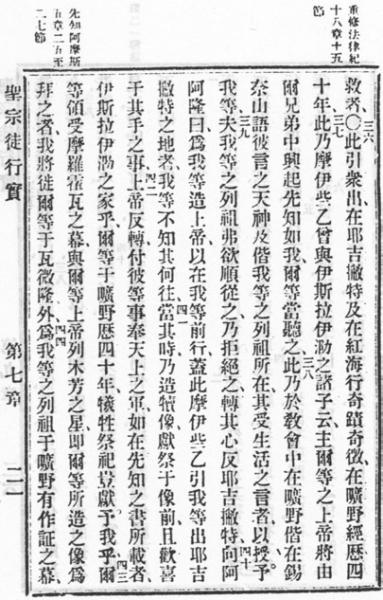 重修法律紀
十八章十五
節
先知阿摩斯
五章二五至
二七節
三六
救者〇此引衆出在耶吉撇特及在紅海行奇蹟奇徵在曠野經歷四
三七
十年此乃摩伊些乙曾與伊斯拉伊泐之諸子云主爾等之上帝將由
三八
爾兄弟中興起先知如我爾等當聽之此乃於教會中在曠野偕在錫
奈山語彼言之天神及偕我等之列祖所在其受生活之言者以授予
三九 四十
我等夫我等之列祖弗欲順從之乃拒絕之轉其心反耶吉撇特向阿
阿隆曰爲我等造上帝以在我等前行蓋此摩伊些乙引我等出耶吉
四一
撇特之地者我等不知其何往當其時乃造犢像獻祭于像前且歡喜
四二
于其手之事上帝反轉付彼等事奉天上之軍如在先知之書所載者
四三
伊斯拉伊泐之家乎爾等于曠野歷四十年犧牲祭祀豈獻予我乎爾
等領受摩羅霍瓦之幕與爾等上帝列木芳之星即爾等所造之像爲
四四
拜之者我將徙爾等于瓦微隆外爲我等之列祖于曠野有作証之幕
聖宗徒行實 第七章 二一